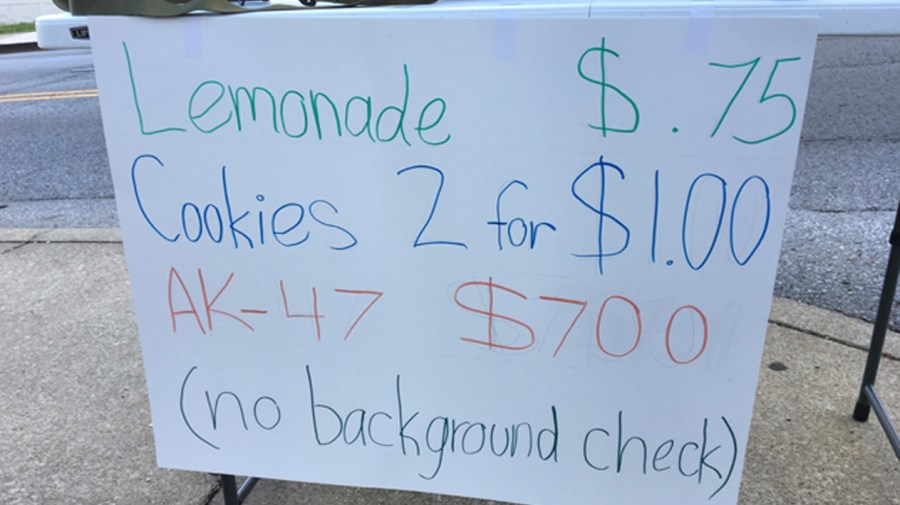 Lemonade $.75
Cookies 2 for $1.00
AK-47 $700
(no background check)